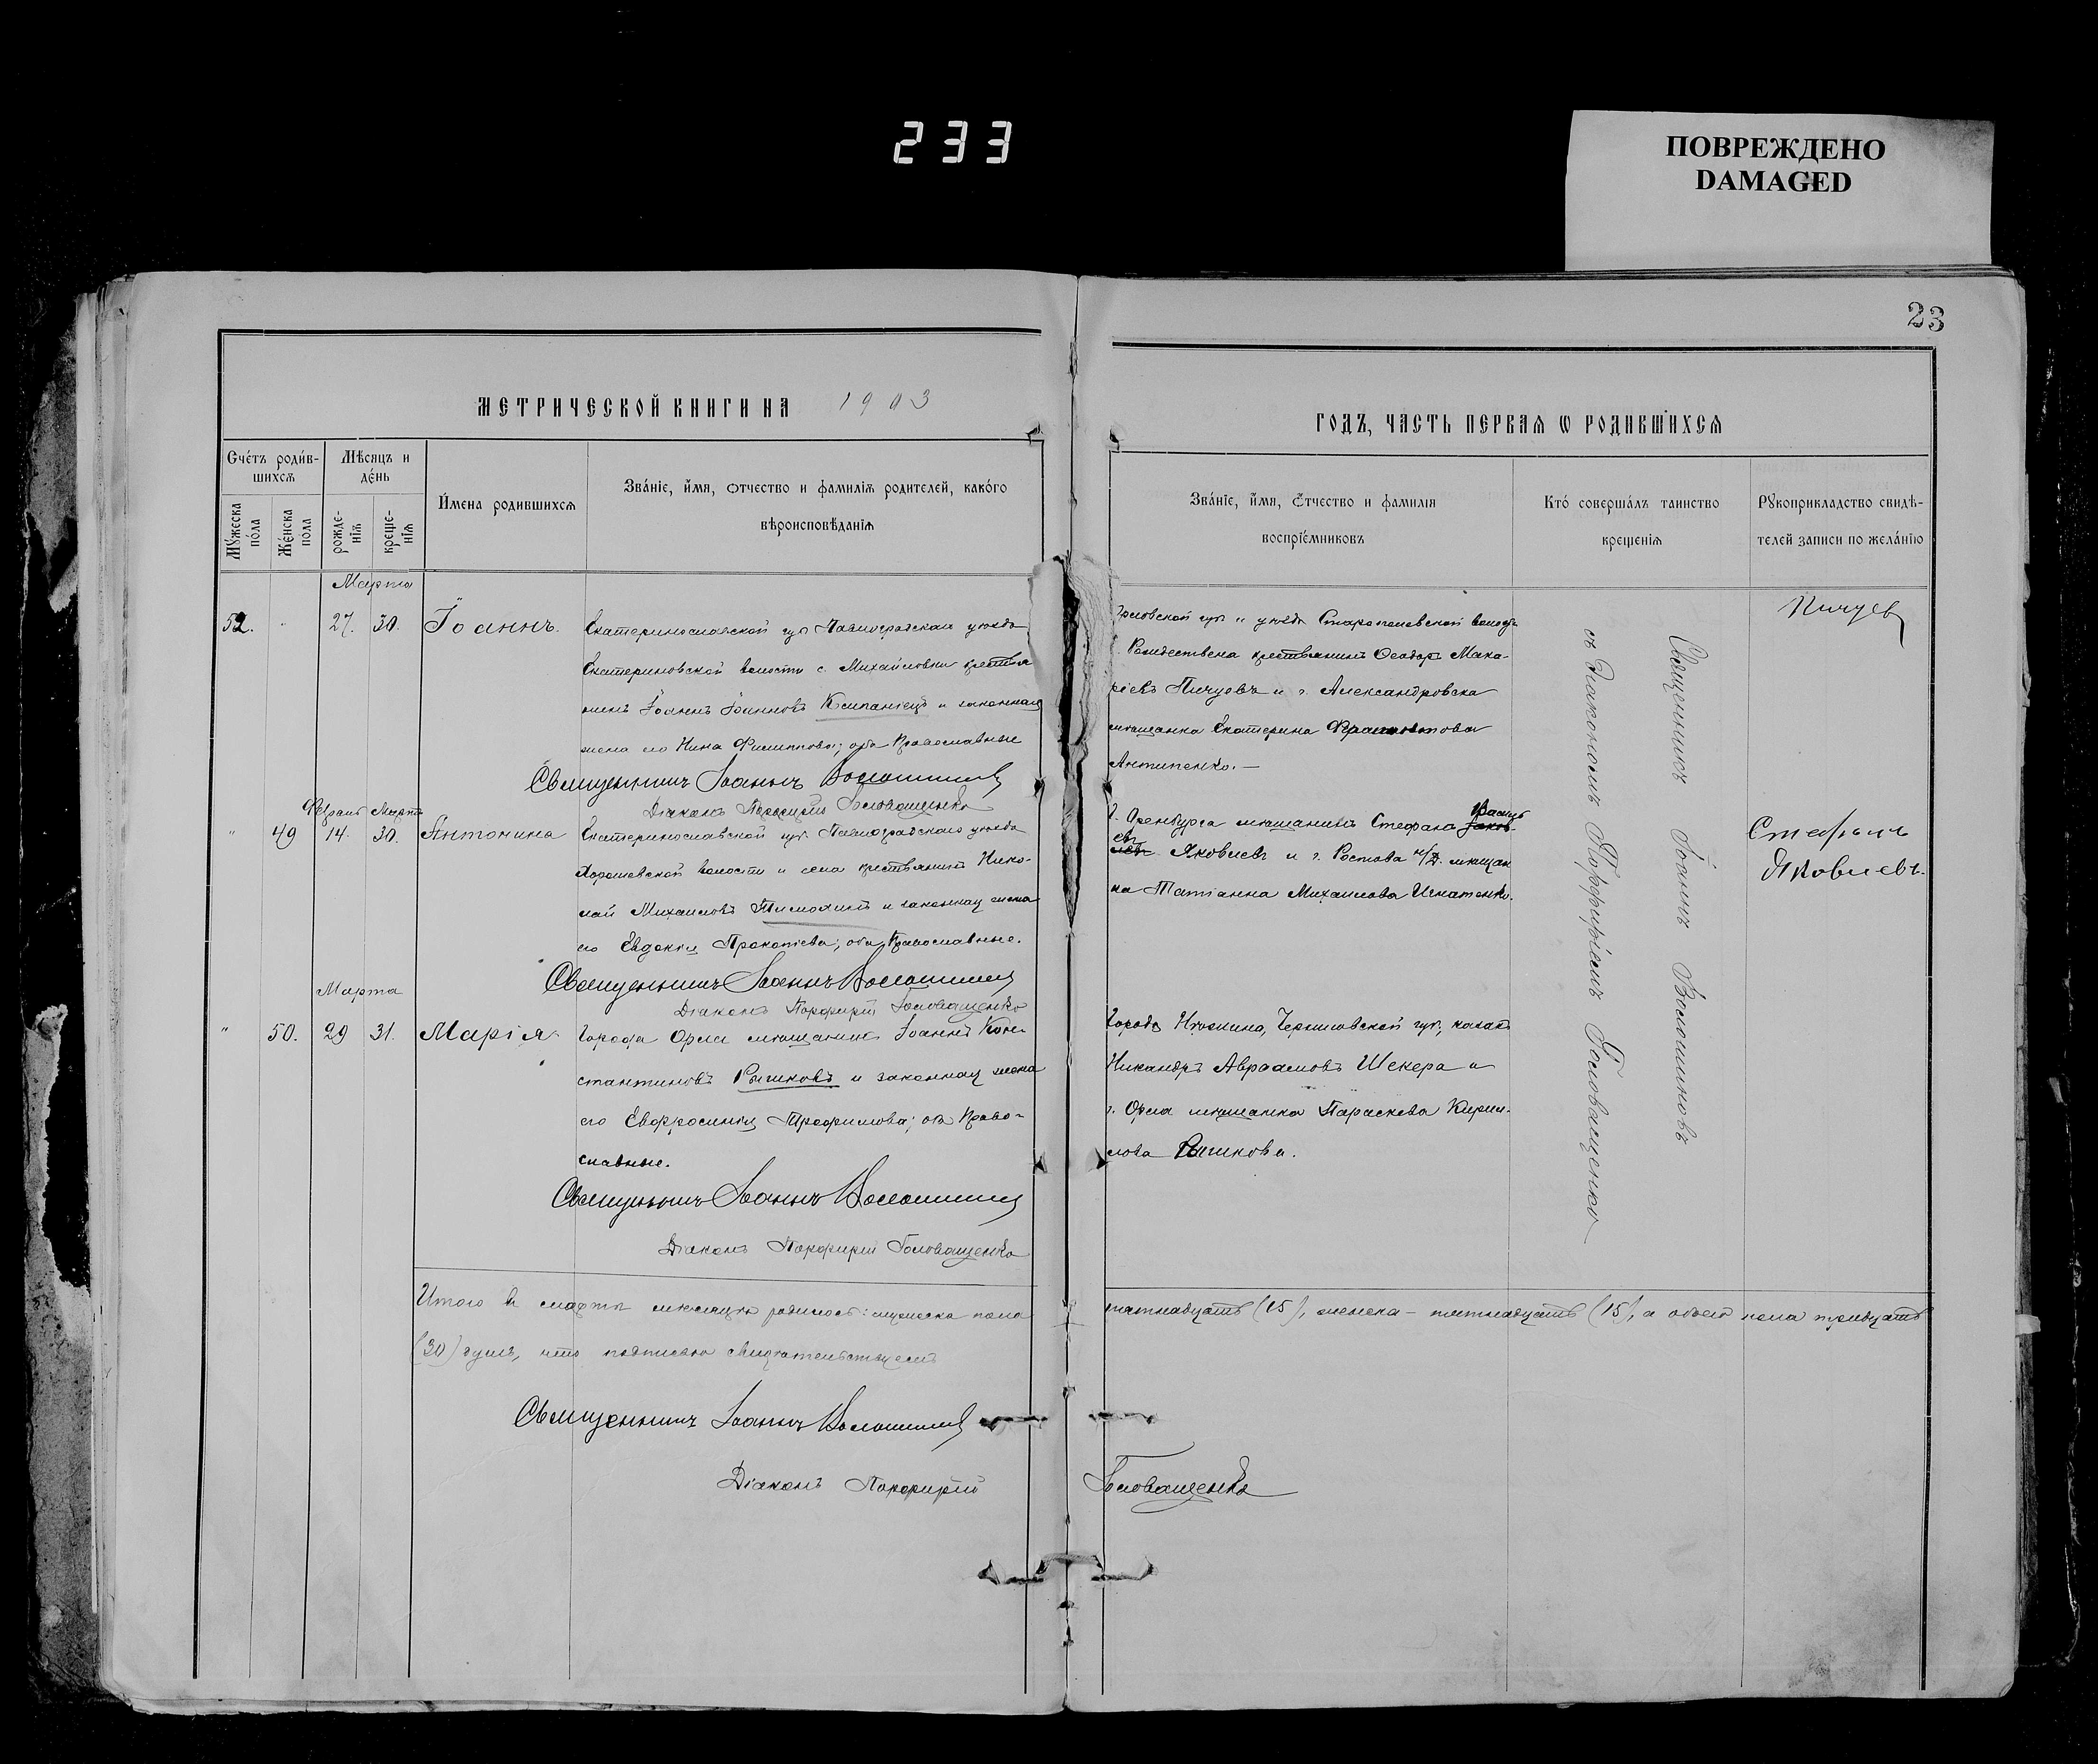 233
ПОВРЕЖДЕНО
DAMAGED
23
МЕТРИЧЕСКОЙ КНИГИ НА 1903
ГОДЪ, ЧАСТЬ ПЕРВАЯ Ѡ РОДИВШИХСЯ
Счетъ родив-
шихся
Мужеска
пола
Женска
пола
Мѣсяцъ и
день
рожде-
нія
креще-
нія
Имена родившихся
Званіе, имя, отчество и фамилія родителей, какого
вѣроисповѣданія
Званіе, имя, отчество и фамилія
воспріемниковъ
Кто совершалъ таинство
крещенія
Рукоприкладство свидѣ-
телей записи по желанію
Марта
52. " 27. 30. Іоаннъ.
Екатеринославской губ. Павлоградскаго уѣзда
Екатериновской волости с. Михайловки крестья
нинъ Іоаннъ Іоанновъ Компаніецъ и законная
жена его Нина Филиппова; оба Православные
Священникъ Іоаннъ Волошиновъ
Діаконъ Порфирій Головащенко
Орловской губ. и уѣзда волости
с. Рождествена крестьянинъ Ѳеодоръ Мака-
ріевъ Пичуевъ и г. Александровска
мѣщанка Екатерина
Антипенко. —
Пичуев
Священникъ Іоаннъ Волошиновъ
съ Діакономъ Порфиріемъ Головащенко
Февраля Марта
" 49 14. 30. Антонина
Екатеринославской губ. Павлоградскаго уѣзда
Хорошевской волости и села крестьянинъ Нико-
лай Михаиловъ Тимохинъ и законная жена
его Евдокія Прокопіева; оба Православные.
Священникъ Іоаннъ Волошиновъ
Діаконъ Порфирій Головащенко
г. Оренбурга мѣщанинъ Стефанъ Василь
евъ Яковлевъ и г. Ростова н/Д. мѣщан
ка Татіанна Михаилова Игнатенко.
Стефанъ
Яковлевъ.
Марта
" 50. 29 31. Марія.
Города Орла мѣщанинъ Іоаннъ Кон-
стантиновъ Рычковъ и законная жена
его Евфросинія Трофимова; оба Право-
славные.
Священникъ Іоаннъ Волошиновъ
Діаконъ Порфирій Головащенко
Города Нѣжина, Черниговской губ., казакъ
Никандръ Авраамовъ Шекера и
г. Орла мѣщанка Параскева Кирил-
лова Рычкова.
Итого въ мартѣ мѣсяцѣ родилось: мужеска пола пятнадцать (15), женска – пятнадцать (15), а обоего пола тридцать
(30) душъ, что подписью свидѣтельствуемъ
Священникъ Іоаннъ Волошиновъ
Діаконъ Порфирій Головащенко